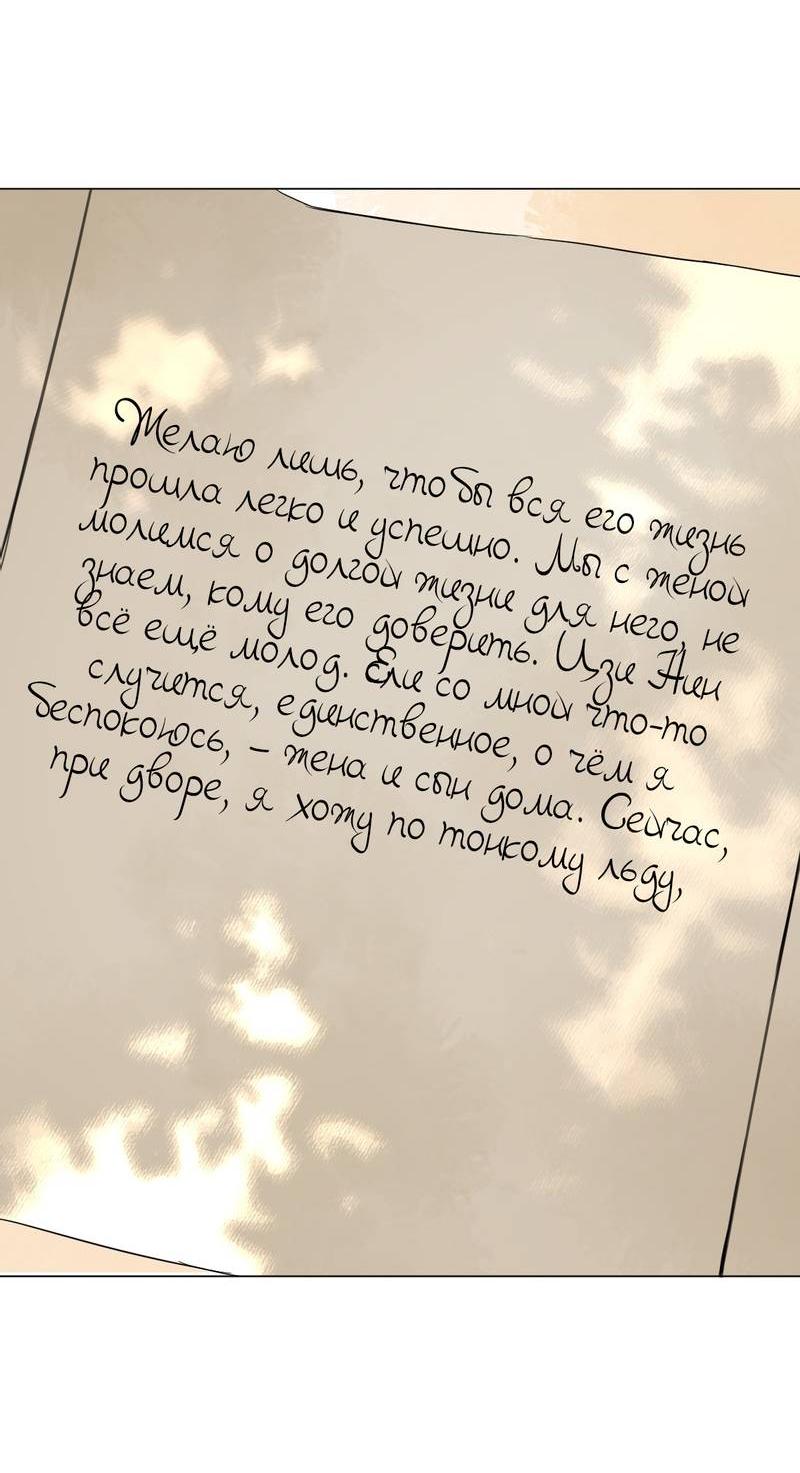 Желаю лишь, что бы вся его жизнь
прошла легко и успешно. Мы с женой
молимся о долгой жизни для него, не
знаем, кому его доверить. Цзи Нин
всё ещё молод. Ели со мной что-то
случится, единственное, о чём я
беспокоюсь, – жена и сын дома. Сейчас,
при дворе, я хожу по тонкому льду,